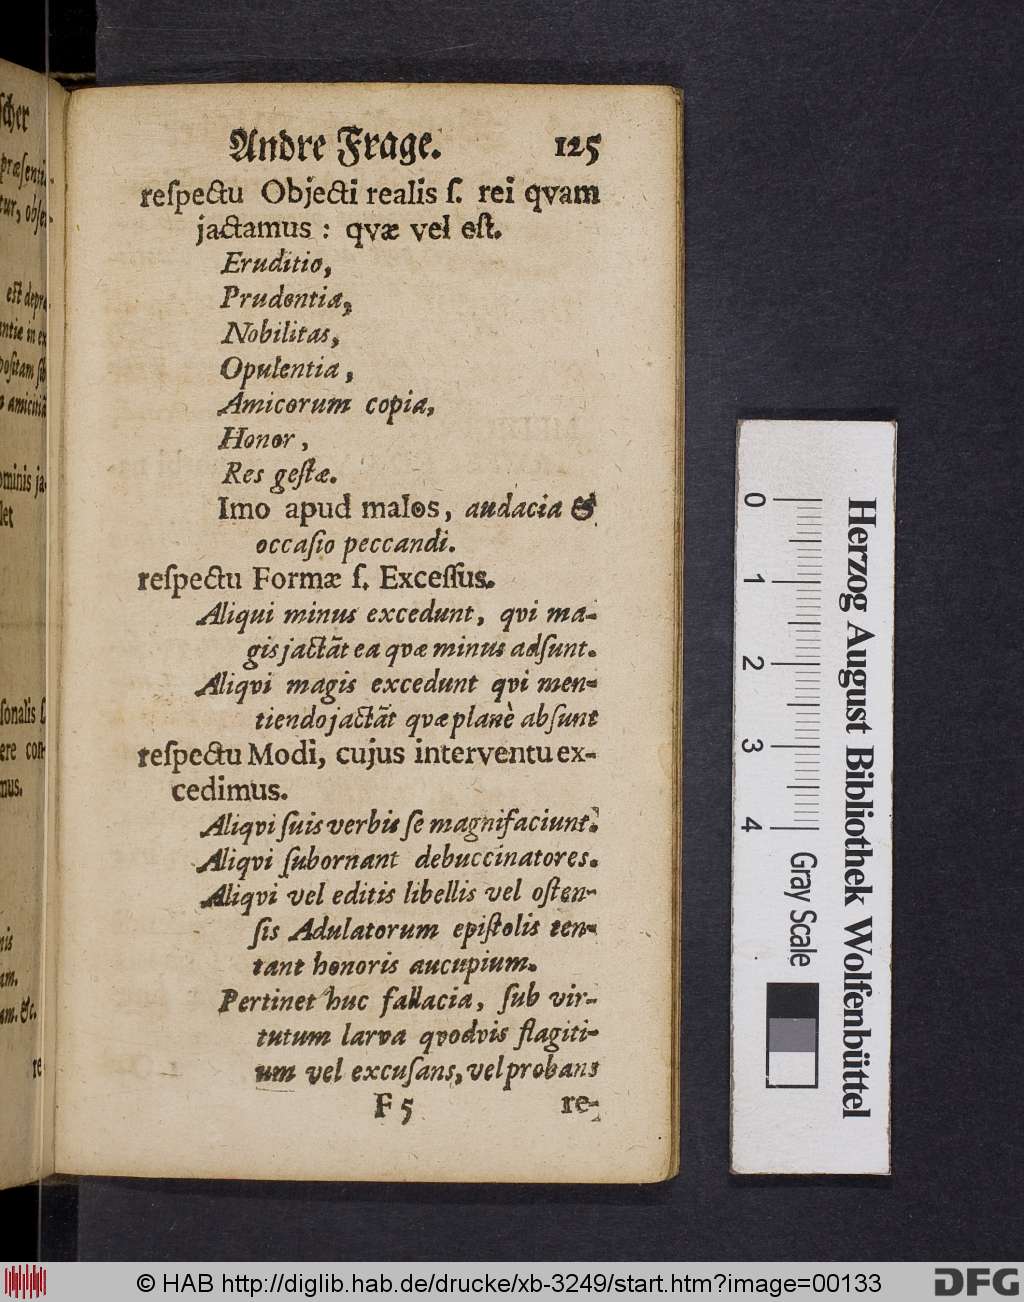 Andre Frage. 125
reſpectu Objecti realis ſ. rei qvam
jactamus : qvæ vel eſt.
Eruditio,
Prudentia,
Nobilitas,
Opulentia,
Amicorum copia,
Honor,
Res geſtæ.
Imo apud malos, audacia &
occaſio peccandi.
reſpectu Formæ ſ. Exceſſus.
Aliqui minus excedunt, qvi ma-
gis jactãt ea qvæ minus adſunt.
Aliqvi magis excedunt qvi men-
tiendo jactãt qvæ planè abſunt
reſpectu Modi, cujus interventu ex-
cedimus.
Aliqvi ſuis verbis ſe magnifaciunt.
Aliqvi ſubornant debuccinatores.
Aliqvi vel editis libellis vel oſten-
ſis Adulatorum epiſtolis ten-
tant honoris aucupium.
Pertinet huc fallacia, ſub vir-
tutum larva qvodvis flagiti-
um vel excuſans, vel probans
F 5 re-
ſcher
præſenti-
tur, obſer-
eſt depra
antiæ in ex
poſitam ſib
o amicitiã
ominis ja-
let
ſonalis ſ.
ere con-
mus.
nis
am.
am. &c.
re-
0 1 2 3 4
Gray Scale
Herzog August Bibliothek Wolfenbüttel
© HAB http://diglib.hab.de/drucke/xb-3249/start.htm?image=00133
DFG